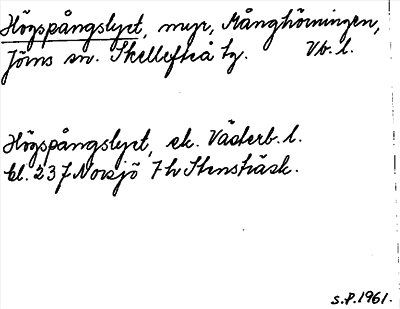 Högspångslyet, myr, Månghörningen,
Jörns sn. Skellefteå tg. Vb. l.
Högspångslyet, ek. Västerb. l.
bl. 23 J Norsjö 7 h Stensträsk.
S.P. 1961.